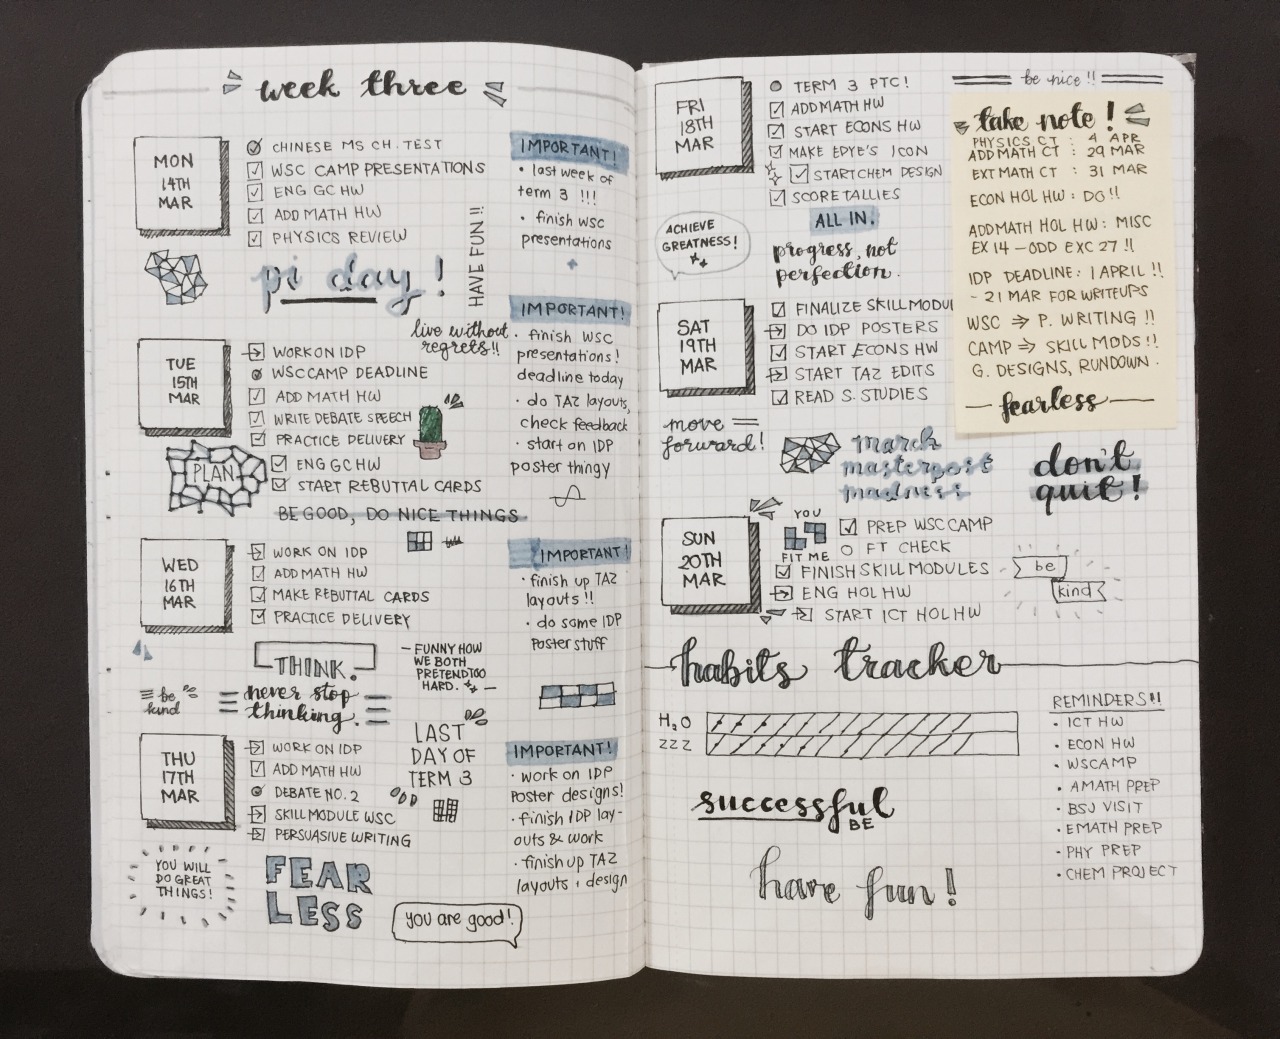 week three
MON
14TH
MAR
CHINESE MS CH. TEST
WSC CAMP PRESENTATIONS
ENG GC HW
ADD MATH HW
PHYSICS REVIEW
IMPORTANT!
• last week of
term 3 !!!
• finish wsc
presentations
pi day!
HAVE FUN!!
live without
regrets!!
TUE
15TH
MAR
WORK ON IDP
WSC CAMP DEADLINE
ADD MATH HW
WRITE DEBATE SPEECH
PRACTICE DELIVERY
ENG GC HW
START REBUTTAL CARDS
PLAN
BE GOOD, DO NICE THINGS
IMPORTANT!
• finish WSC
presentations!
deadline today
• do TAZ layouts,
check feedback
• start on IDP
poster thingy
WED
16TH
MAR
WORK ON IDP
ADD MATH HW
MAKE REBUTTAL CARDS
PRACTICE DELIVERY
IMPORTANT!
• finish up TAZ
layouts !!
• do some IDP
Poster stuff
THINK.
be
kind
never stop
thinking.
– FUNNY HOW
WE BOTH
PRETEND TOO
HARD. –
LAST
DAY OF
TERM 3
THU
17TH
MAR
WORK ON IDP
ADD MATH HW
DEBATE NO. 2
SKILL MODULE WSC
PERSUASIVE WRITING
IMPORTANT!
• work on IDP
Poster designs!
• finish IDP lay-
outs & work
• finish up TAZ
layouts + design
YOU WILL
DO GREAT
THINGS!
FEAR
LESS
you are good!
FRI
18TH
MAR
TERM 3 PTC!
ADD MATH HW
START ECONS HW
MAKE EPYE'S ICON
START CHEM DESIGN
SCORE TALLIES
ACHIEVE
GREATNESS!
ALL IN.
progress, not
perfection.
be nice !!
take note!
PHYSICS CT : 4 APR
ADD MATH CT : 29 MAR
EXT MATH CT : 31 MAR
ECON HOL HW : DO!!
ADDMATH HOL HW: MISC
EX 14 – ODD EXC 27 !!
IDP DEADLINE: 1 APRIL !!
~ 21 MAR FOR WRITEUPS
WSC ⇒ P. WRITING !!
CAMP ⇒ SKILL MODS !!
G. DESIGNS, RUNDOWN.
— fearless —
SAT
19TH
MAR
FINALIZE SKILL MODU
DO IDP POSTERS
START ECONS HW
START TAZ EDITS
READ S. STUDIES
move
forward!
march
masterpost
madness
don't
quit!
SUN
20TH
MAR
YOU
FIT ME
PREP WSC CAMP
FT CHECK
FINISH SKILL MODULES
ENG HOL HW
START ICT HOL HW
be
kind
habits tracker
H₂O
ZZZ
REMINDERS!!
• ICT HW
• ECON HW
• WSCAMP
• AMATH PREP
• BSJ VISIT
• EMATH PREP
• PHY PREP
• CHEM PROJECT
successful
BE
have fun!